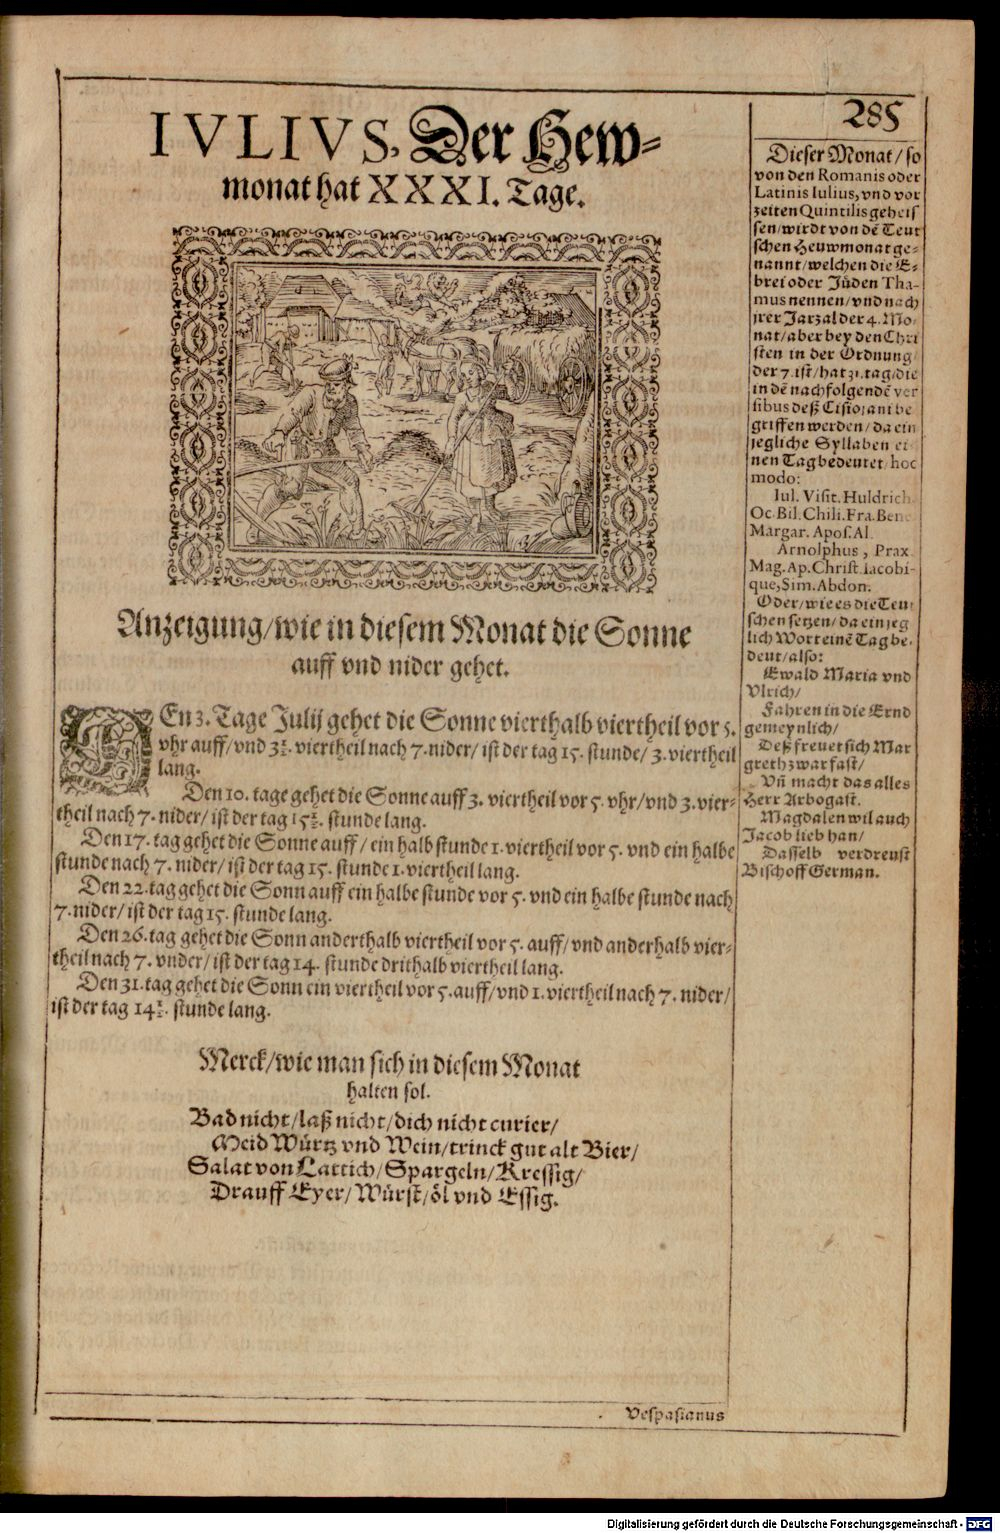 285
IVLIVS, Der Hew-
monat hat XXXI. Tage.
Anzeigung/wie in diesem Monat die Sonne
auff vnd nider gehet.
DEn 3. Tage Julij gehet die Sonne vierthalb viertheil vor 5.
vhr auff/vnd 3½. viertheil nach 7. nider/ ist der tag 15. stunde/ 3. viertheil
lang.
Den 10. tage gehet die Sonne auff 3. viertheil vor 5. vhr/vnd 3. vier-
theil nach 7. nider/ ist der tag 15½. stunde lang.
Den 17. tag gehet die Sonne auff/ ein halb stunde 1. viertheil vor 5. vnd ein halbe
stunde nach 7. nider/ ist der tag 15. stunde 1. viertheil lang.
Den 22. tag gehet die Sonn auff ein halbe stunde vor 5. vnd ein halbe stunde nach
7. nider/ ist der tag 15. stunde lang.
Den 26. tag gehet die Sonn anderthalb viertheil vor 5. auff/ vnd anderhalb vier-
theil nach 7. vnder/ ist der tag 14. stunde drithalb viertheil lang.
Den 31. tag gehet die Sonn ein viertheil vor 5. auff/vnd 1. viertheil nach 7. nider/
ist der tag 14½. stunde lang.
Merck/wie man sich in diesem Monat
halten sol.
Bad nicht/laß nicht/dich nicht curier/
Meid Würtz vnd Wein/trinck gut alt Bier/
Salat von Lattich/Spargeln/Kressig/
Drauff Eyer/Würst/öl vnd Essig.
Vespasianus
Dieser Monat/so
von den Romanis oder
Latinis Iulius, vnd vor
zeiten Quintilis geheis
sen/wirdt von dẽ Teut
schen Heuwmonat ge-
nannt/welchen die E-
brei oder Jüden Tha-
mus nennen/vnd nach
jrer Jarzal der 4. Mo-
nat/aber bey den Chri
sten in der Ordnung
der 7. ist/hat 31. tag/die
in dẽ nachfolgendẽ ver
sibus deß Cisioiani be
griffen werden/da ein
jegliche Syllaben ei-
nen Tag bedeutet/hoc
modo:
Iul. Visit. Huldrich.
Oc. Bil. Chili. Fra. Bene
Margar. Apos. Al.
Arnolphus, Prax.
Mag. Ap. Christ. Iacobi-
que, Sim. Abdon.
Oder/wie es die Teut
schen setzen/da ein jeg
lich Wort einẽ Tag be-
deut/also:
Ewald Maria vnd
Vlrich/
Fahren in die Ernd
gemeynlich/
Deß frewet sich Mar
greth zwar fast/
Vñ macht das alles
Herr Arbogast.
Magdalen wil auch
Jacob lieb han/
Dasselb verdreust
Bischoff German.
Digitalisierung gefördert durch die Deutsche Forschungsgemeinschaft - DFG